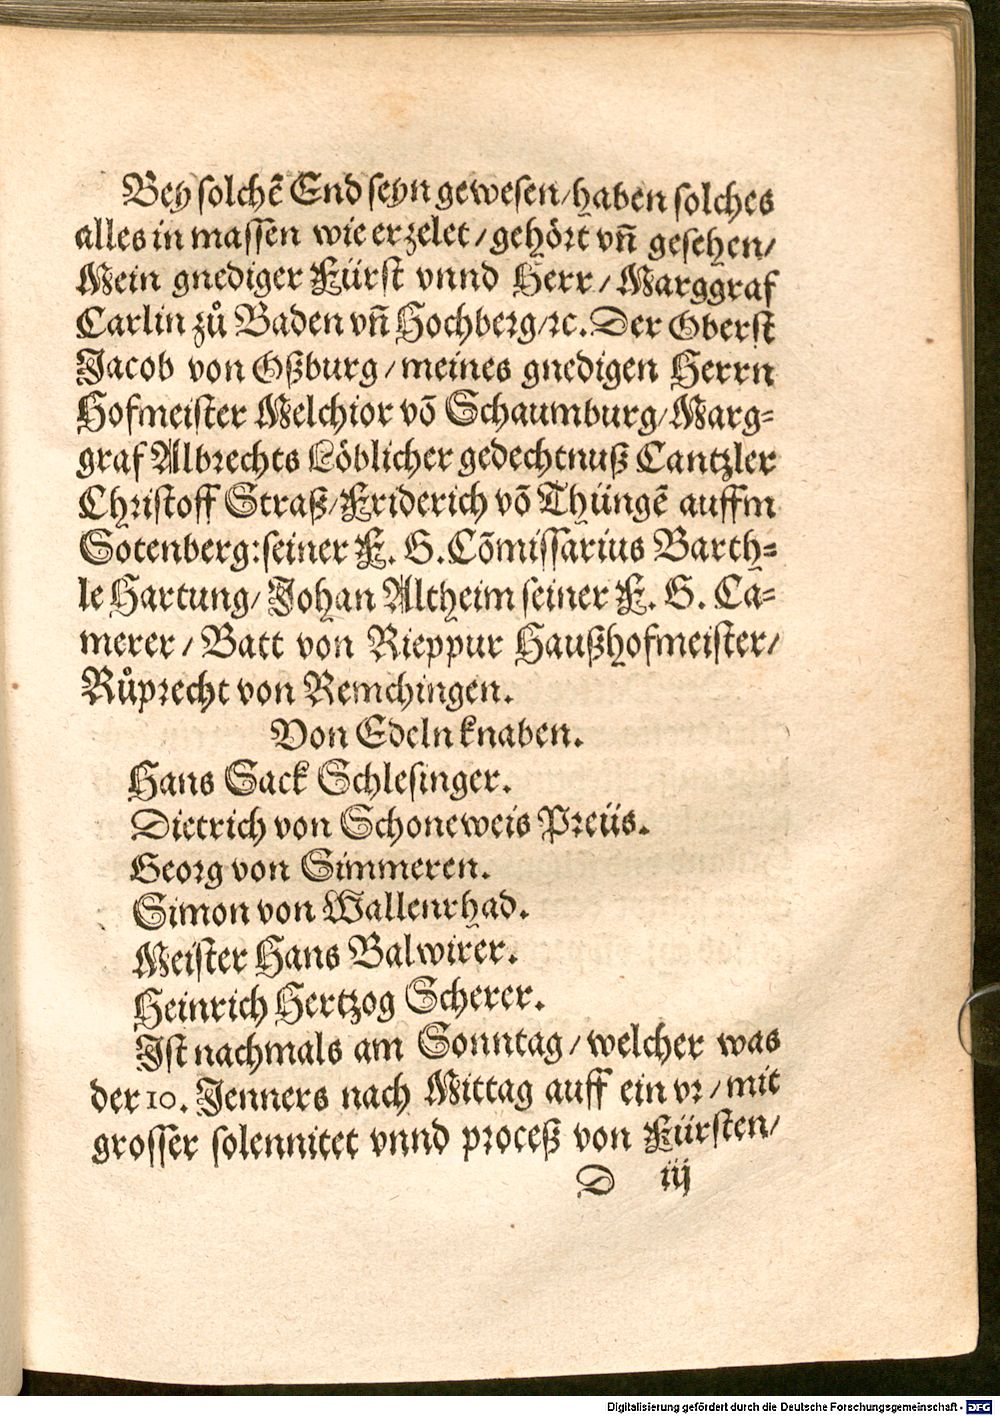 Bey solchē End seyn gewesen / haben solches
alles in massen wie erzelet / gehört vn̄ gesehen /
Mein gnediger Fürst vnnd Herr / Marggraf
Carlin zů Baden vn̄ Hochberg / ꝛc. Der Oberst
Jacob von Oßburg / meines gnedigen Herrn
Hofmeister Melchior vō Schaumburg / Marg=
graf Albrechts Löblicher gedechtnuß Cantzler
Christoff Straß / Friderich vō Thüngē auffm
Sotenberg: seiner F. G. Cōmissarius Barth=
le Hartung / Johan Altheim seiner F. G. Ca=
merer / Batt von Rieppur Haußhofmeister /
Růprecht von Remchingen.
Von Edeln knaben.
Hans Sack Schlesinger.
Dietrich von Schoneweis Preüs.
Georg von Simmeren.
Simon von Wallenrhad.
Meister Hans Balwirer.
Heinrich Hertzog Scherer.
Ist nachmals am Sonntag / welcher was
der 10. Jenners nach Mittag auff ein vr / mit
grosser solennitet vnnd proceß von Fürsten /
D iij
Digitalisierung gefördert durch die Deutsche Forschungsgemeinschaft - DFG